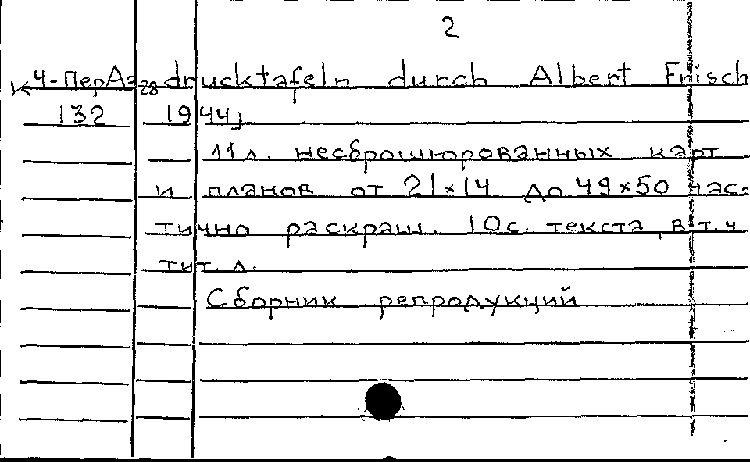 2
К 4-ПерАз 28 drucktafeln durch Albert Frisch
132 1944]
11 л. несброшюрованных карт
и планов от 21×14 до 49×50 час-
тично раскраш. 10 с. текста, в т.ч.
тит. л.
Сборник репродукций